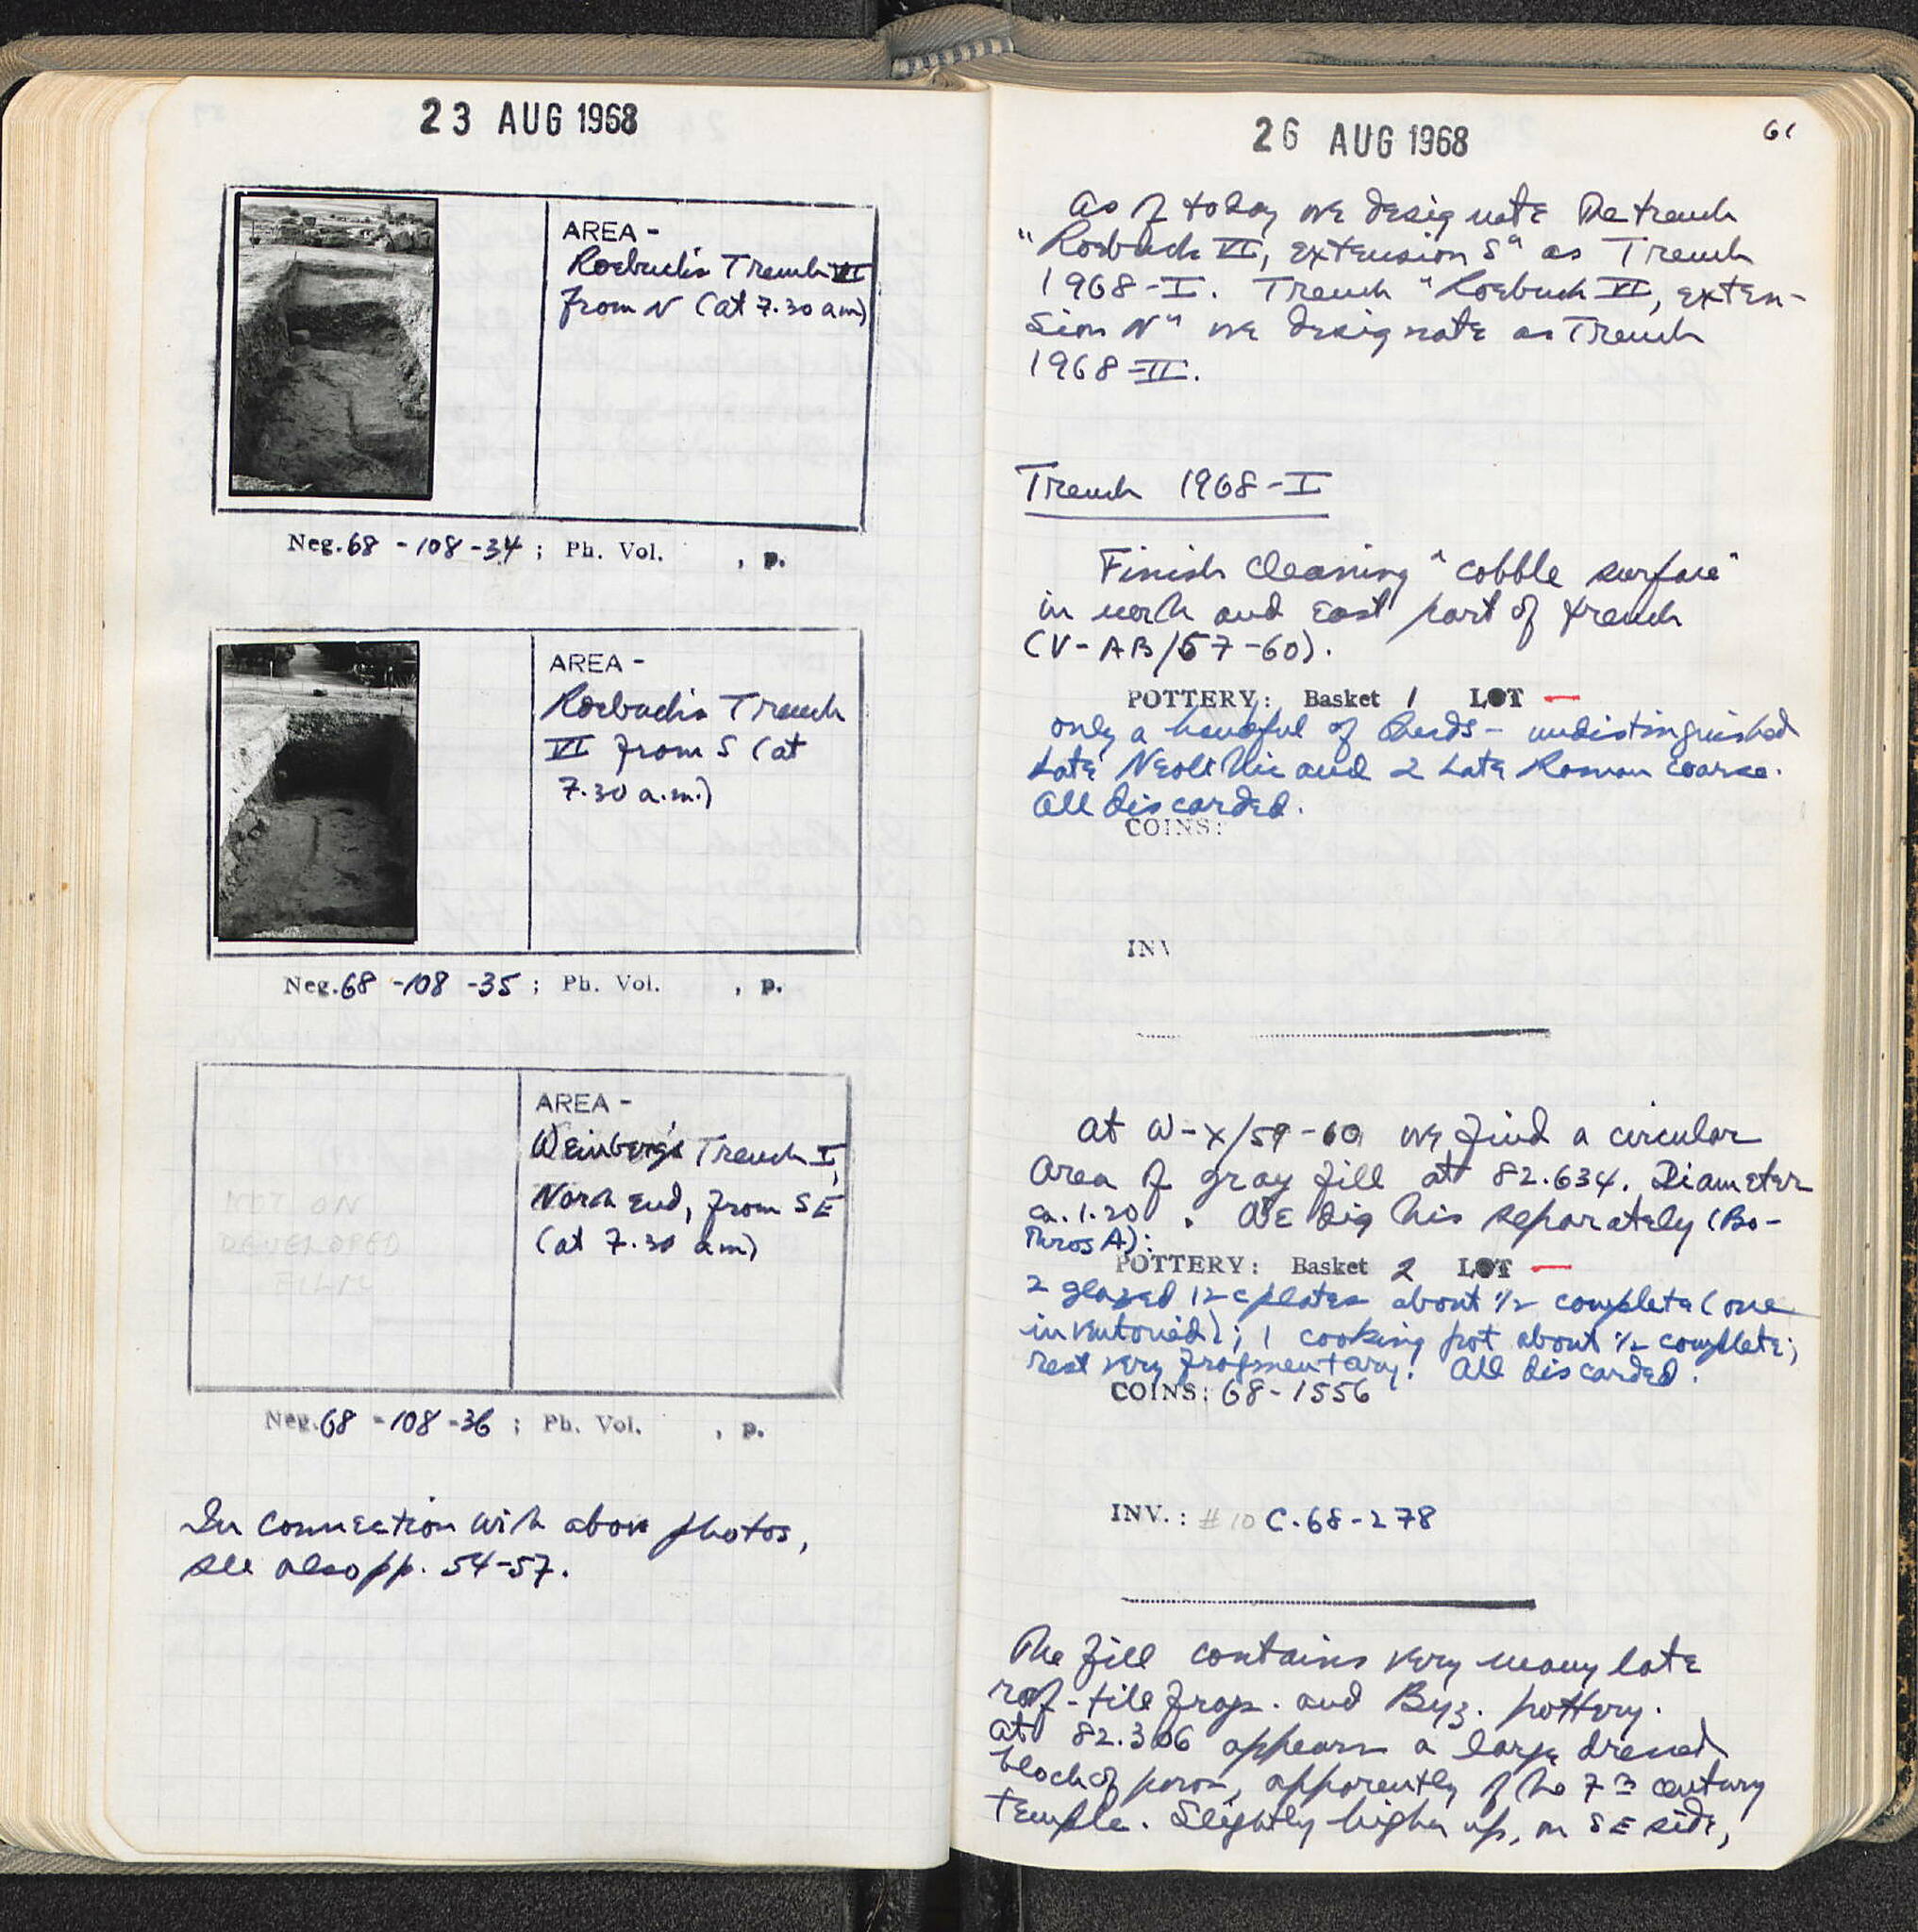 23 AUG 1968
AREA -
Roebuck's Trench VI
from N (at 7.30 am)
Neg. 68 - 108 - 34 ; Ph. Vol. , p.
AREA -
Roebuck's Trench
VI from S (at
7.30 a.m.)
Neg. 68 - 108 - 35 ; Ph. Vol. , p.
AREA -
Weinberg's Trench I,
North End, from SE
(at 7.30 am)
NOT ON
DEVELOPED
FILM
Neg. 68 - 108 - 36 ; Ph. Vol. , p.
In connection with above photos,
see also pp. 54-57.
26 AUG 1968
61
As of today we designate the trench
"Roebuck VI, extension S" as Trench
1968-I. Trench "Roebuck VI, exten-
sion N" we designate as Trench
1968-II.
Trench 1968-I
Finish cleaning "cobble surface"
in north and east part of trench
(V-AB/57-60).
POTTERY: Basket 1 LOT —
only a handful of sherds - undistinguished
Late Neolithic and 2 Late Roman coarse.
All discarded.
COINS:
INV
At W-X/59-60 we find a circular
area of gray fill at 82.634. Diameter
ca. 1.20. We dig this separately (Bo-
thros A):
POTTERY: Basket 2 LOT —
2 glazed 12c plates about 1/2 complete (one
inventoried); 1 cooking pot about 1/2 complete;
rest very fragmentary. All discarded.
COINS: 68-1556
INV.: #10 C.68-278
The fill contains very many late
roof-tile frags. and Byz. pottery.
At 82.306 appears a large dressed
block of poros, apparently of the 7th century
temple. Slightly higher up, on SE side,